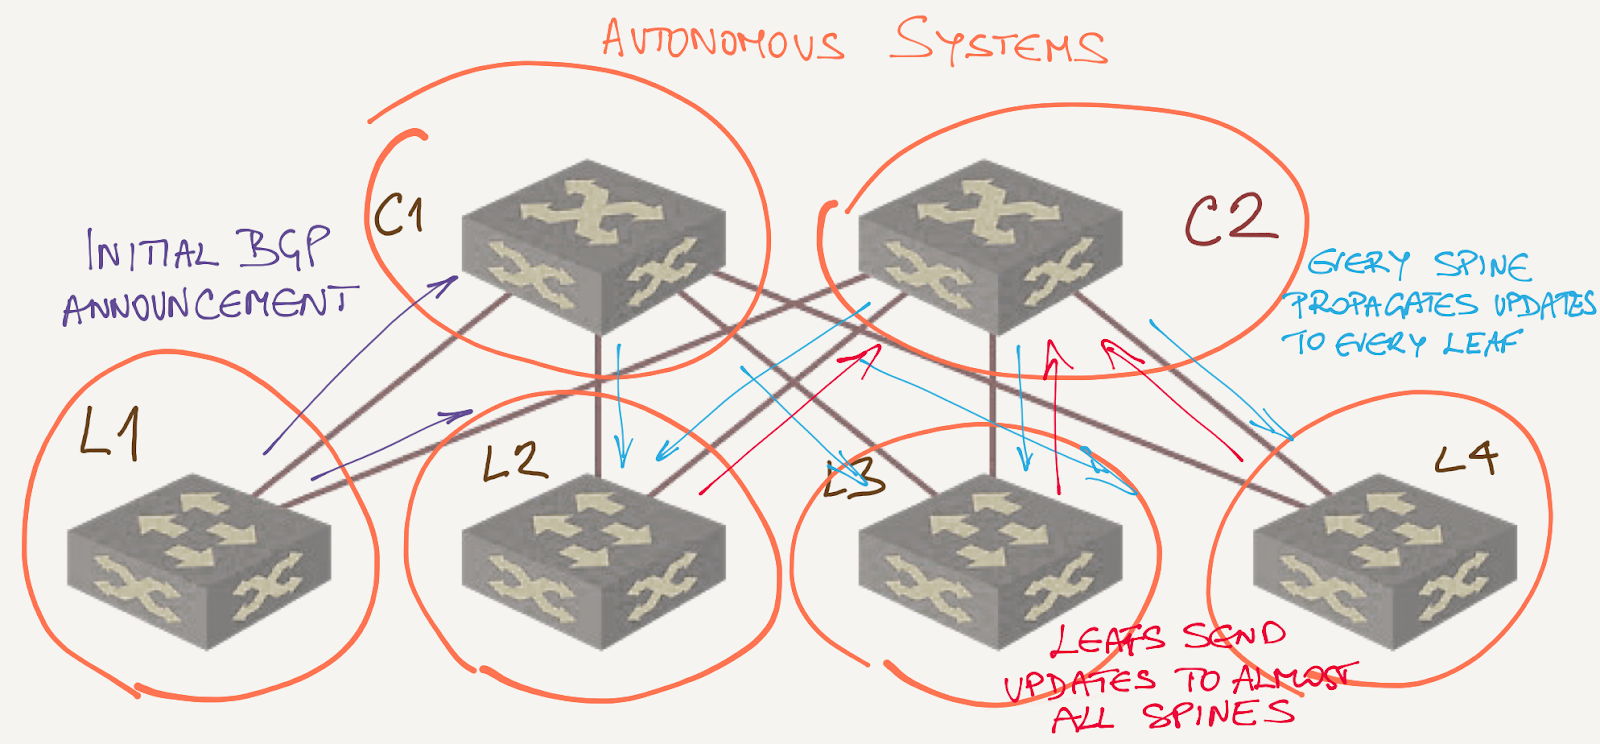 AUTONOMOUS SYSTEMS
C1
C2
INITIAL BGP
ANNOUNCEMENT
EVERY SPINE
PROPAGATES UPDATES
TO EVERY LEAF
L1
L2
L3
L4
LEAFS SEND
UPDATES TO ALMOST
ALL SPINES